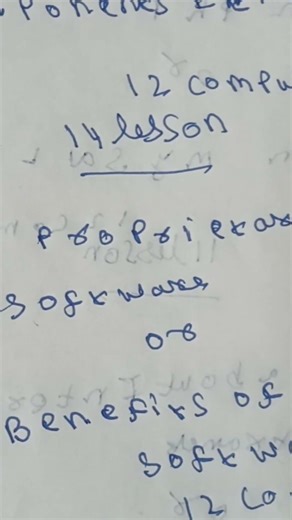 12 compu
14 lesson
Proprietar
software
or
Benefits of
softw
12 co